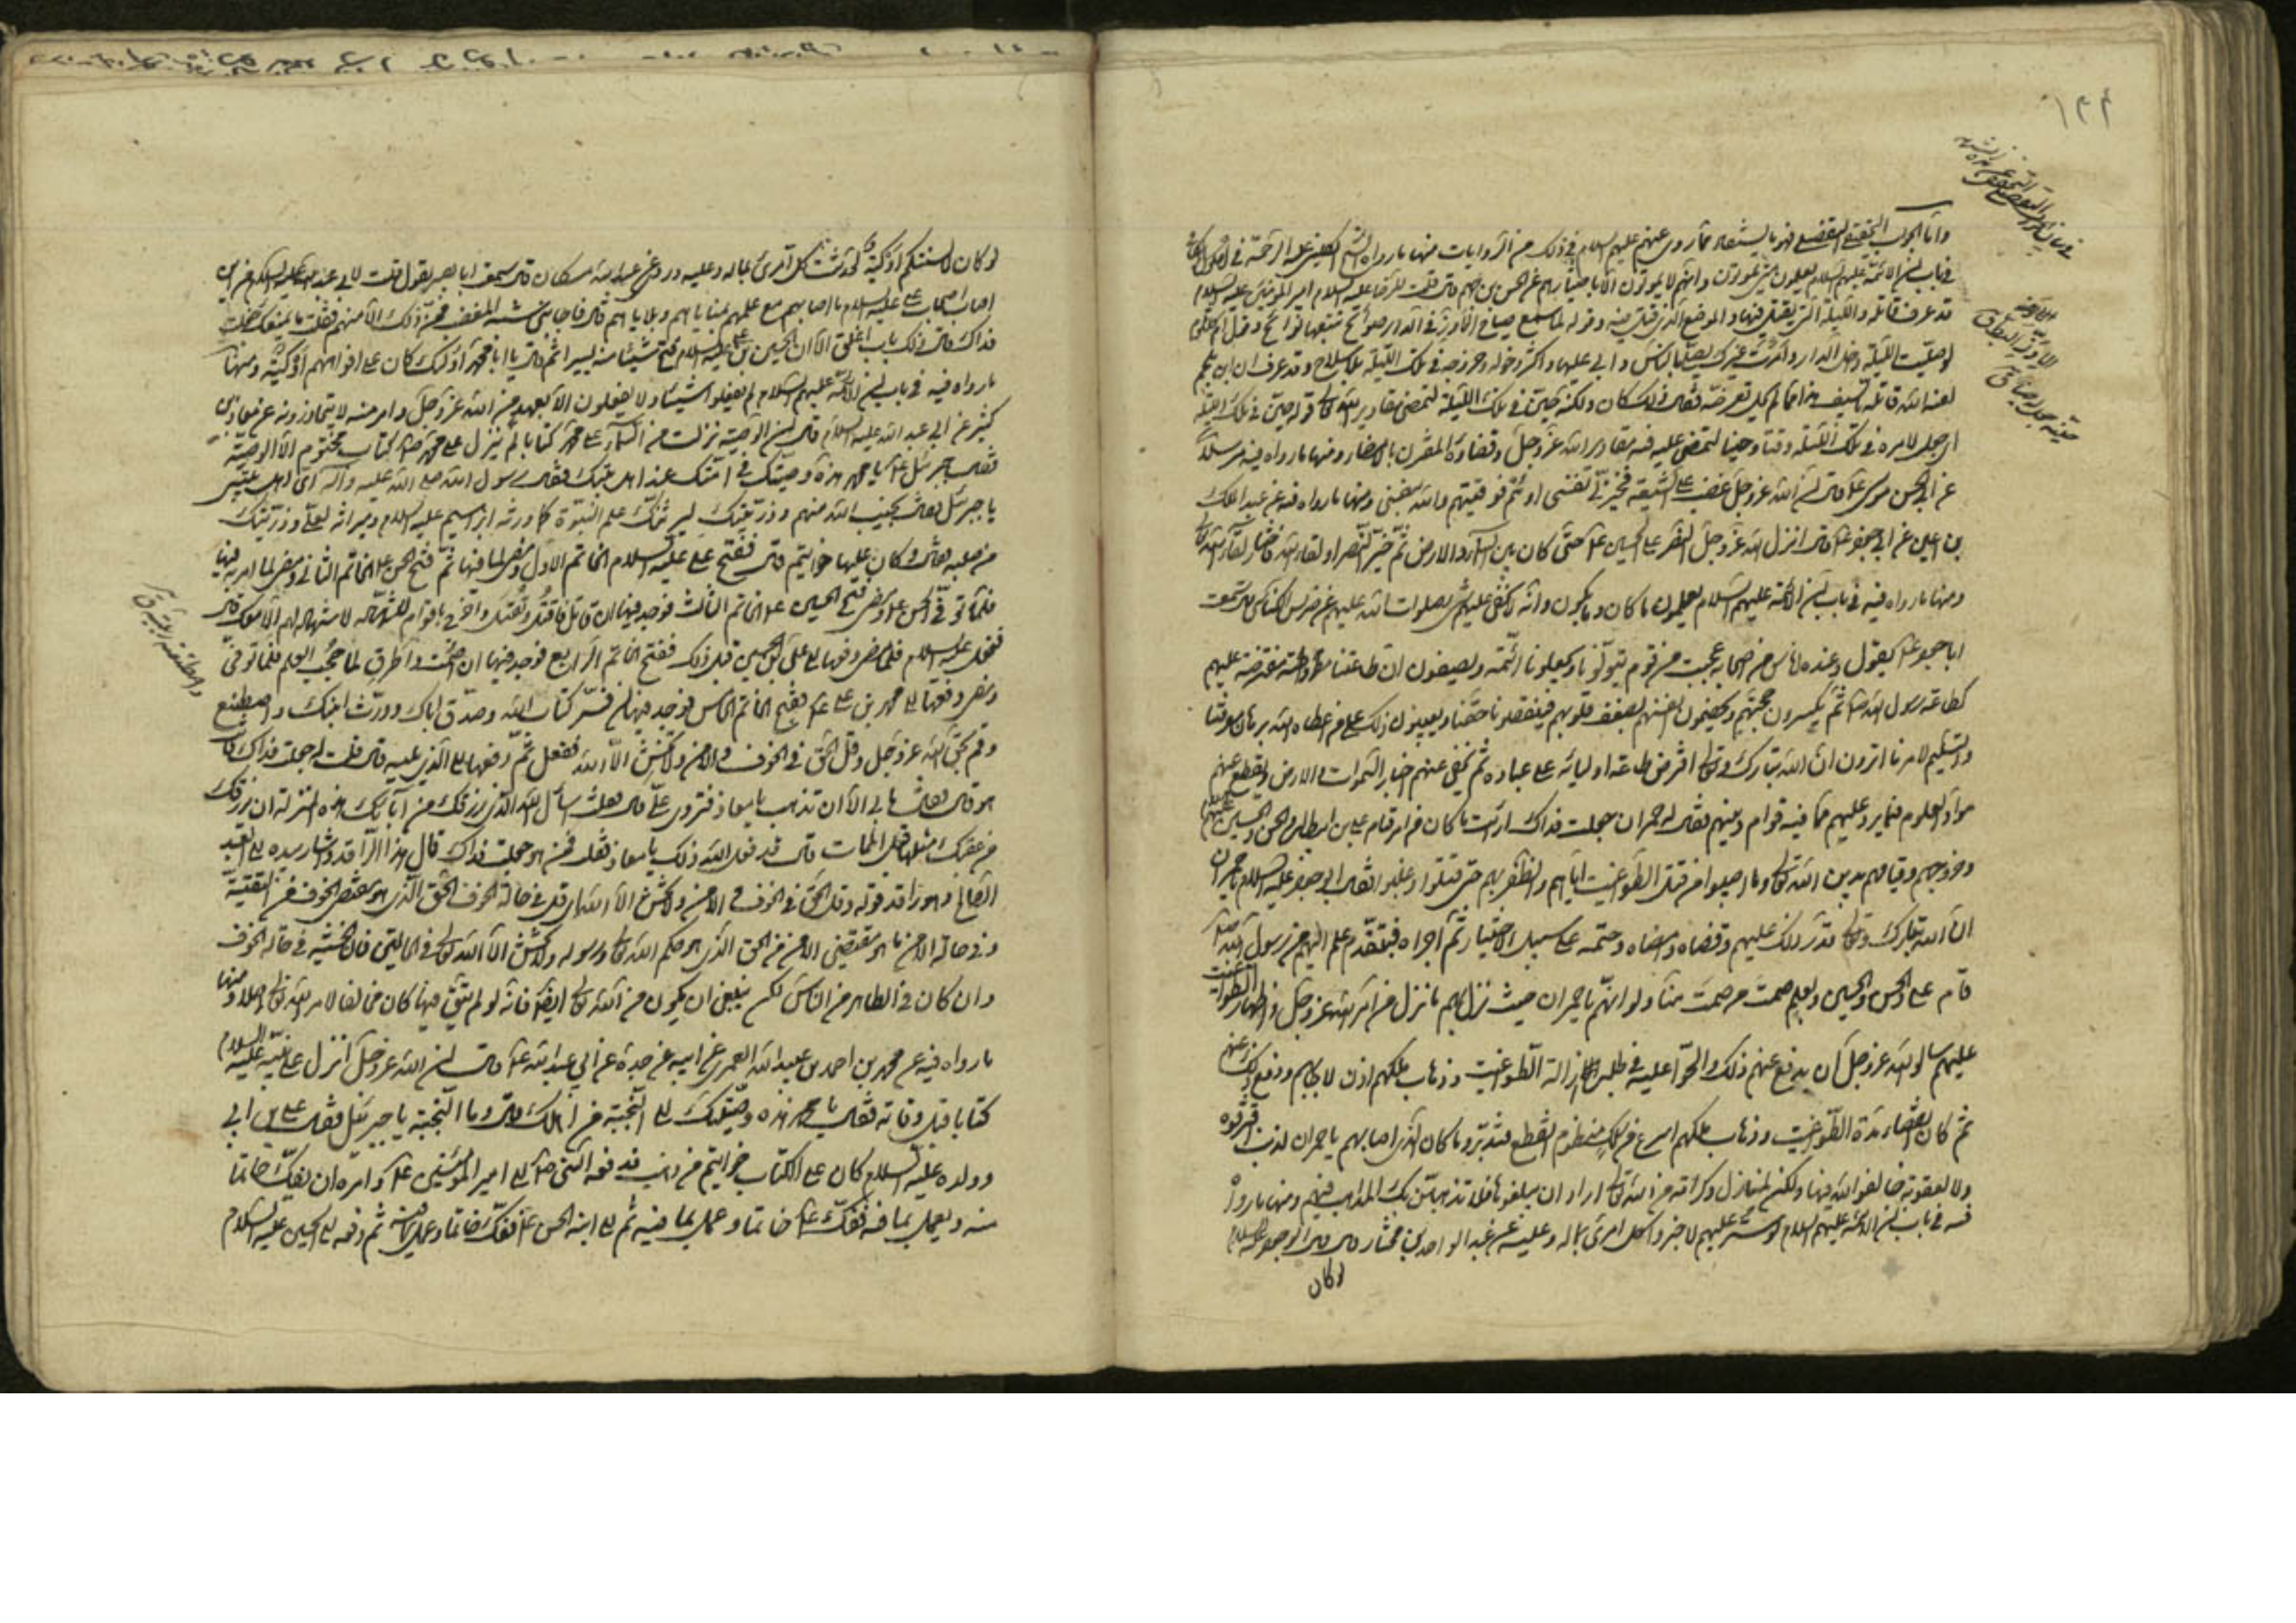 ١٤٤
واما الجواب التحقيقي التفصيلي فهو ما يستفاد مما روي عنهم عليهم السلام في ذلك من الروايات منها ما رواه الشيخ الكليني عليه الرحمة في اصول الكافي
في باب ان الائمة عليهم السلام يعلمون متى يموتون وانهم لا يموتون الا باختيارهم عن الحسن بن جهم قال قلت للرضا عليه السلام امير المؤمنين عليه السلام
قد عرف قاتله والليلة التي يقتل فيها والموضع الذي يقتل فيه وقوله لما سمع صياح الاوز في الدار صوائح تتبعها نوائح وقول ام كلثوم
لو صليت الليلة داخل الدار وامرت غيرك يصلي بالناس وابى عليها وكثر دخوله وخروجه في تلك الليلة بلا سلاح وقد عرف ان ابن ملجم
لعنه الله قاتله بالسيف هذا مما لم يحل تعرضه فقال ذلك كان ولكنه حين في تلك الليلة لتمضي مقادير الله تعالى قوله حين في تلك الليلة
اي جعل لامره في تلك الليلة وقتا وحينا لتمضي عليه فيه مقادير الله عز وجل وقضاؤه المقرن بالامضاء ومنها ما رواه فيه مرسلا
عن ابي الحسن موسى ع قال ان الله عز وجل غضب على الشيعة فخيرني نفسي او هم فوقيتهم والله بنفسي ومنها ما رواه فيه عن عبد الملك
بن اعين عن ابي جعفر ع قال انزل الله عز وجل النصر على الحسين ع حتى كان بين السماء والارض ثم خير النصر او لقاء الله فاختار لقاء الله تعالى
ومنها ما رواه فيه في باب ان الائمة عليهم السلام يعلمون ما كان وما يكون وانه لا يخفى عليهم شيء صلوات الله عليهم عن ضريس الكناسي قال سمعت
ابا جعفر ع يقول وعنده اناس من اصحابه عجبت من قوم يتولونا ويجعلونا ائمة ويصفون ان طاعتنا مفترضة عليهم
كطاعة رسول الله ص ثم يكسرون حجتهم ويخصمون انفسهم بضعف قلوبهم فينقصونا حقنا ويعيبون ذلك على من اعطاه الله برهان معرفتنا
والتسليم لامرنا اترون ان الله تبارك وتعالى افترض طاعة اوليائه على عباده ثم يخفي عنهم اخبار السموات والارض ويقطع عنهم
مواد العلوم فيما يرد عليهم مما فيه قوام دينهم فقال له حمران جعلت فداك ارأيت ما كان من امر قيام علي بن ابي طالب والحسن والحسين عليهم السلام
وخروجهم وقيامهم بدين الله تعالى وما اصيبوا من قتل الطواغيت اياهم والظفر بهم حتى قتلوا وغلبوا فقال ابو جعفر عليه السلام يا حمران
ان الله تبارك وتعالى قدر ذلك عليهم وقضاه وامضاه وحتمه على سبيل الاختيار ثم اجراه فبتقدم علم اليهم من رسول الله ص
قام علي والحسن والحسين وبعلم صمت من صمت منا ولو انهم يا حمران حيث نزل بهم ما نزل من امر الله عز وجل واظهار الطواغيت
عليهم سالوا الله عز وجل ان يدفع عنهم ذلك والحوا عليه في طلب ازالة الطواغيت وذهاب ملكهم اذن لاجابهم ودفع ذلك عنهم
ثم كان انقضاء مدة الطواغيت وذهاب ملكهم اسرع من سلك منظوم انقطع فتبدد وما كان الذي اصابهم يا حمران لذنب اقترفوه
ولا لعقوبة خالفوا الله فيها ولكن لمنازل وكرامة من الله تعالى اراد ان يبلغوها فلا تذهبن بك المذاهب فيهم ومنها ما رواه
فيه في باب ان الائمة عليهم السلام لو ستر عليهم لاخبروا كل امرئ بما له وعليه عن عبد الواحد بن مختار قال قال ابو جعفر عليه السلام
لو كان
لو كان لالسنتكم اوكية لحدثت كل امرئ بما له وعليه وروى عن عبد الله بن مسكان قال سمعت ابا بصير يقول قلت لابي عبد الله عليه السلام من اين
اصاب اصحاب علي عليه السلام ما اصابهم مع علمهم بمناياهم وبلاياهم قال فاجابني شبه المغضب ممن ذلك الا منهم فقلت ما يمنعك جعلت
فداك قال ذلك باب اغلق الا ان الحسين بن علي عليه السلام فتح شيئا منه يسيرا ثم قال يا ابا محمد ان اولئك كان على افواههم اوكية ومنها
ما رواه فيه في باب ان الائمة عليهم السلام لم يفعلوا شيئا ولا يفعلون الا بعهد من الله عز وجل وامر منه لا يتجاوزونه عن معاذ بن
كثير عن ابي عبد الله عليه السلام قال ان الوصية نزلت من السماء على محمد كتابا لم ينزل على محمد ص كتاب مختوم الا الوصية
فقال جبرئيل ع يا محمد هذه وصيتك في امتك عند اهل بيتك فقال رسول الله صلى الله عليه وآله اي اهل بيتي
يا جبرئيل فقال نجيب الله منهم وذريته ليرثك علم النبوة كما ورثه ابراهيم عليه السلام وميراثه لعلي وذريتك
من صلبه فقال وكان عليها خواتيم قال ففتح علي عليه السلام الخاتم الاول ومضى لما فيها ثم فتح الحسن ع الخاتم الثاني ومضى لما امر به فيها
فلما توفي الحسن ع ومضى فتح الحسين ع الخاتم الثالث فوجد فيها ان قاتل فاقتل وتقتل واخرج باقوام للشهادة لا شهادة لهم الا معك قال
ففعل عليه السلام فلما مضى دفعها الى علي بن الحسين قبل ذلك ففتح الخاتم الرابع فوجد فيها ان اصمت واطرق لما حجب العلم فلما توفي
ومضى دفعها الى محمد بن علي ع ففتح الخاتم الخامس فوجد فيها ان فسر كتاب الله وصدق اباك وورث ابنك واصطنع
وقم بحق الله عز وجل وقل الحق في الخوف والامن ولا تخش الا الله ففعل ثم دفعها الى الذي يليه قال قلت له جعلت فداك فانت
هو قال فقال ما بي الا ان تذهب يا معاذ فتروي علي قال فقلت اسأل الله الذي رزقك من آبائك هذه المنزلة ان يرزقك
من عقبك مثلها قبل الممات قال قد فعل الله ذلك يا معاذ فقلت فمن هو جعلت فداك قال هذا الراقد واشار بيده الى العبد
الصالح وهو راقد قوله وقل الحق في الخوف والامن ولا تخش الا الله اي قل في حالة الخوف الحق الذي هو مقتضى الخوف من التقية
وفي حالة الامن ما هو مقتضى الامن من الحق الذي هو حكم الله تعالى ورسوله ولا تخش الا الله تعالى في الحالتين فان الخشية في حالة الخوف
وان كان في الظاهر من الناس لكن ينبغي ان يكون من الله تعالى ايضا فانه لو لم يتق فيها كان مخالفا لامر الله تعالى ومنها
ما رواه فيه عن محمد بن احمد بن عبيد الله العمري عن ابيه عن جده عن ابي عبد الله ع قال ان الله عز وجل انزل على نبيه عليه السلام
كتابا قبل وفاته فقال يا محمد هذه وصيتك الى النجبة من اهلك قال وما النجبة يا جبرئيل فقال علي بن ابي
وولده عليه السلام كان على الكتاب خواتيم من ذهب فدفعه النبي ص الى امير المؤمنين ع وامره ان يفك خاتما
منه ويعمل بما فيه ففك ع خاتما وعمل بما فيه ثم الى ابنه الحسن ع ففك خاتما وعمل بما فيه ثم دفعه الى الحسين عليه السلام